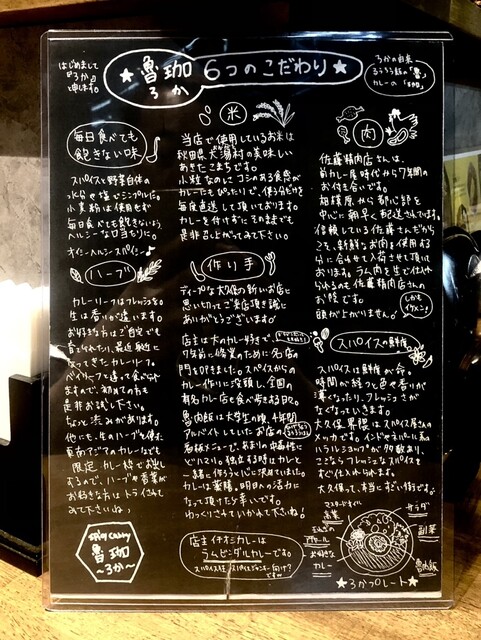 はじめまして
『ろか』
と申します。
★魯珈 6つのこだわり★
ろか
ろかの由来
るうろう飯の「魯」
カレーの「珈」
毎日食べても
飽きない味
スパイスと野菜自体の
水分や塩でシンプルに。
小麦粉は使用せず
毎日食べても飽きないよう
ヘルシーな口当たりに。
オイシーヘルシースパイシー♪
ハーブ
カレーリーフはフレッシュを
生は香りが違います。
お好きな方はご自宅でも
育てられたり、最近身近に
なってきたカレーリーフ。
ベイリーフと違って食べられ
ますので、初めての方も
是非お試し下さい。
ちょっと渋みがあります。
他にも、生のハーブを使た
東南アジアのカレーなども
限定カレー枠でお出し
するので、ハーブや香菜が
お好きな方はトライされて
みて下さいね♪
spicy curry
魯珈
~ろか~
米
当店で使用しているお米は
秋田県大潟村の美味しい
あきたこまちです。
小粒なのにコシのある食感が
カレーにもぴったりで、使う分だけを
毎度直送して頂いております。
カレーを付けずにそのままでも
是非召し上がってみて下さい。
作り手
ディープな大久保の新しいお店に
思い切ってご来店頂き誠に
ありがとうございます。
店主は大のカレー好きで、
7年前に修業のために名店の
門を叩きました。スパイスからの
カレー作りに没頭し、全国の
有名カレー店を食べ歩きする日々。
魯肉飯は大学生の頃、4年間
アルバイトしていたお店の
名板メニューで、あまりの中毒性に
どハマリ。独立する時はカレーと
一緒に作ろうと心に決めていました。
カレーは薬膳。明日への活力に
なって頂けたら幸いです。
ゆっくりされていかれて下さいね♪
店主イチオシカレーは
ラムビンダルカレーです。
肉
佐藤精肉店さんは、
前カレー屋時代から7年間の
お付き合いです。
相模原から都心部を
中心に朝早く配送されてます。
信頼している佐藤さんだから
こそ、新鮮なお肉を使用する
分に合わせて入荷させて頂いて
おります。ラム肉を生で仕入れ
られるのも佐藤精肉店さんの
お陰です。
頭が上がりません。
しかも
イケメン!
スパイスの鮮度
スパイスは鮮度が命。
時間が経つと色や香りが
薄くなったり、フレッシュさが
なくなっていきます。
大久保界隈はスパイス屋さんの
メッカです。インドやネパール系の
ハラルショップが多数あり、
ここならフレッシュなスパイスを
すぐ仕入れられます。
大久保って、本当にすごい街です。
マスタードオイル
高菜
玉ねぎの
アチャール
お好きな
カレー
サラダ
副菜
魯肉飯
★ろかプレート★